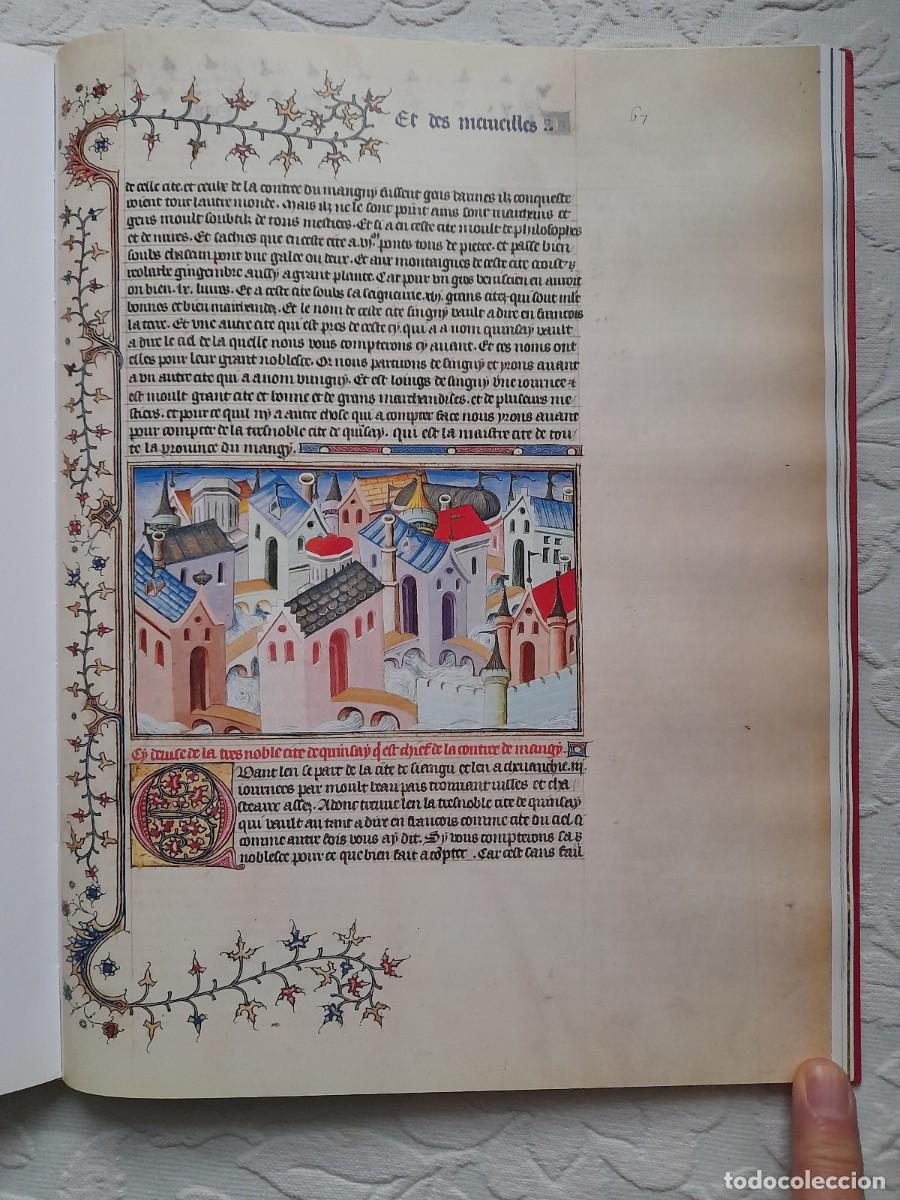 Et des merueilles
67
de celle cite. et ceulx de la contree du mangny fussent gens darmes ilz conqueste
roient tout lautre monde. Mais ilz ne le sont point ains sont marchans et
gens moult soubtilz de tous mestiers. Et si a en ceste cite moult de philosophes
et de mires. Et sachies que en ceste cite a .vi.ͫ ponts tous de pierre. et passe bien
soubs chascun pont vne galee ou deux. Et aux montaignes de ceste cite croist
reobarbe gingembre aussy a grant plante. Car pour vn gros venicien en auroit
on bien .lx. liures. Et a ceste cite soubs sa seigneurie .xvj. grans citez qui sont mlt
bonnes et bien marchandes. Et le nom de ceste cite singny vault a dire en francois
la terre. Et vne autre cite qui est pres de ceste cy. qui a a nom quinsay vault
a dire le ciel de la quelle nous vous compterons cy auant. Et ces noms ont
elles pour leur grant noblesce. Or nous partirons de singny et yrons auant
a vn autre cite qui a a nom vungny. Et est loings de singny vne iournee
est moult grant cite et bonne et de grans marchandises. et de pluseurs mes
tiers. et pour ce quil ny a autre chose qui a compter face nous yrons auant
pour compter de la tresnoble cite de quisay. qui est la maistre cite de tou
te la prouince du mangy.
Cy deuise de la tres noble cite de quinsay q est chief de la contree de mangy.
Quant len se part de la cite de siangu et len a cheuauchie .iij.
iournees par moult beau pais trouuant villes et cha
steaux assez. Adonc treuue len la tresnoble cite de quinsay
qui vault autant a dire en francois comme cite du ciel si
comme autre fois vous ay dit. Sy vous compterons sa
noblesce pour ce que bien fait a cōpter. Car cest sans fail
todocoleccion